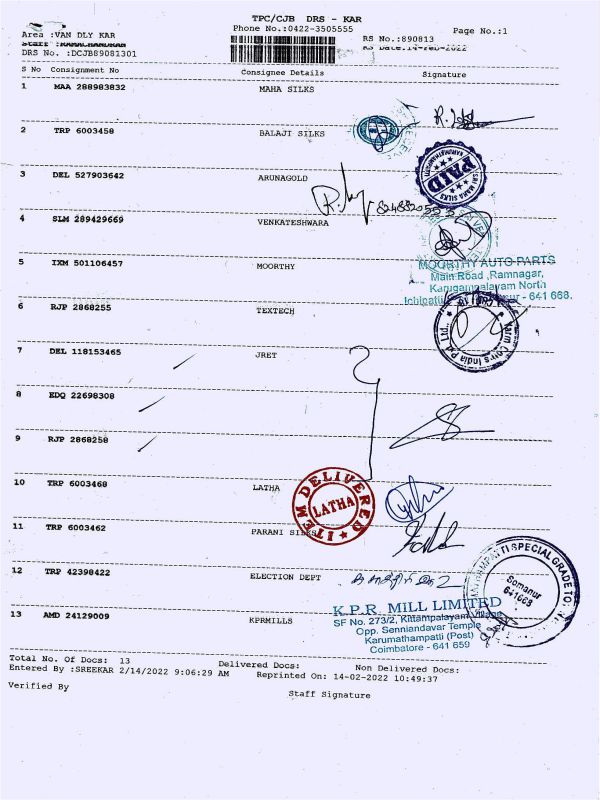 TPC/CJB DRS - KAR
Phone No.:0422-3505555
Page No.:1
Area :VAN DLY KAR
RS No.:890813
Staff :RAMACHANDRAN
RS Date:14-Feb-2022
DRS No. :DCJB89081301
S No Consignment No Consignee Details Signature
1 MAA 288983832 MAHA SILKS
2 TRP 6003458 BALAJI SILKS
3 DEL 527903642 ARUNAGOLD
PAID
SRI MAHA SILKS
4 SLM 289429669 VENKATESHWARA
5 IXM 501106457 MOORTHY
MOORTHY AUTO PARTS
Main Road ,Ramnagar,
Karugampalayam North
641 668.
6 RJP 2868255 TEXTECH
India Pvt. Ltd.
7 DEL 118153465 JRET
8 EDQ 22698308
9 RJP 2868258
10 TRP 6003468 LATHA
ITEM DELIVERED
LATHA
11 TRP 6003462 PARANI SILKS
12 TRP 42398422 ELECTION DEPT
SPECIAL GRADE TO
Somanur
641668
13 AMD 24129009 KPRMILLS
K.P.R. MILL LIMITED
SF No. 273/2, Kittampalayam Village
Opp. Senniandavar Temple
Karumathampatti (Post)
Coimbatore - 641 659
Total No. Of Docs: 13 Delivered Docs: Non Delivered Docs:
Entered By :SREEKAR 2/14/2022 9:06:29 AM Reprinted On: 14-02-2022 10:49:37
Verified By Staff Signature